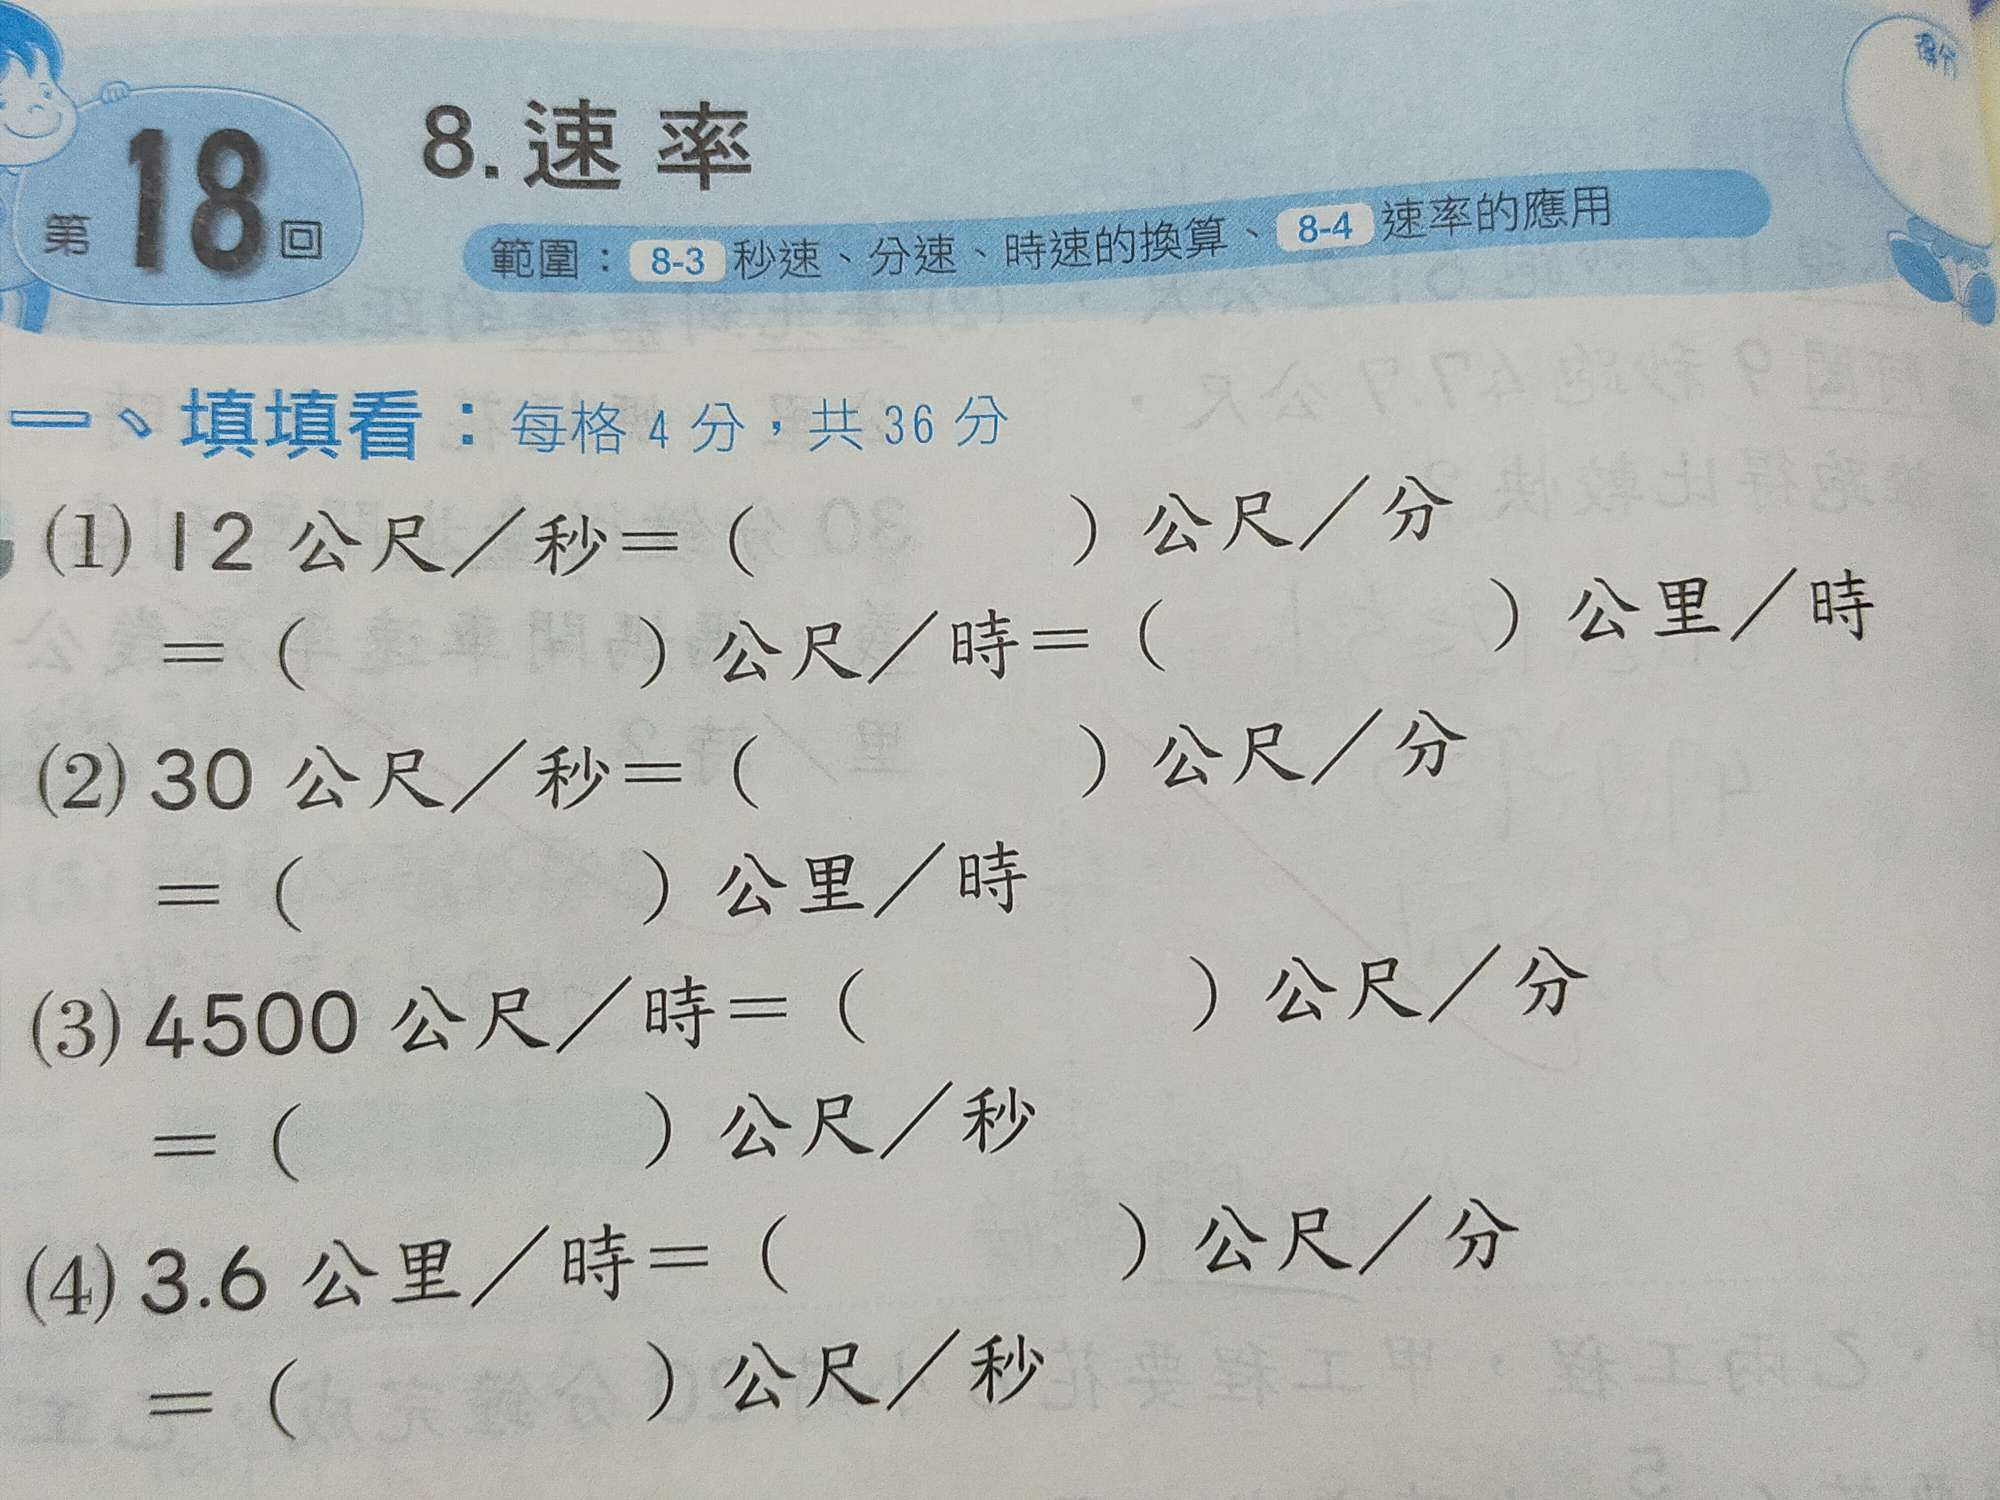 第18回
8.速率
範圍：8-3 秒速、分速、時速的換算、8-4 速率的應用
得分
一、填填看：每格 4 分，共 36 分
(1) 12 公尺／秒＝（　　　）公尺／分
＝（　　　）公尺／時＝（　　　）公里／時
(2) 30 公尺／秒＝（　　　）公尺／分
＝（　　　）公里／時
(3) 4500 公尺／時＝（　　　）公尺／分
＝（　　　）公尺／秒
(4) 3.6 公里／時＝（　　　）公尺／分
＝（　　　）公尺／秒